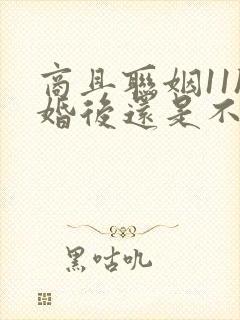 商且聯姻11
婚後還是不
黑咕叽